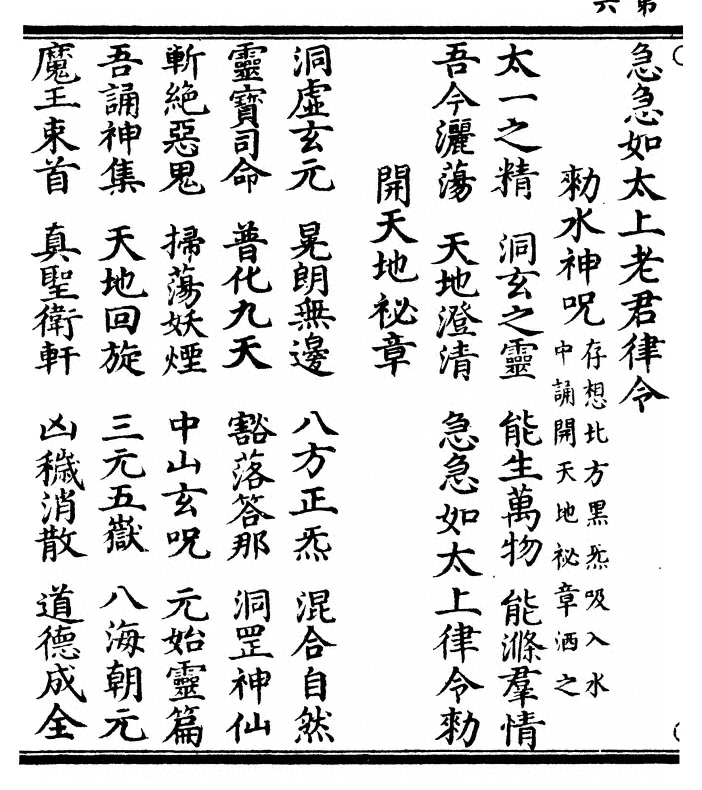 第六
急急如太上老君律令
勑水神呪 存想北方黑炁吸入水
中誦開天地祕章洒之
太一之精 洞玄之靈 能生萬物 能滌羣情
吾今灑蕩 天地澄清 急急如太上律令勑
開天地祕章
洞虛玄元 晃朗無邊 八方正炁 混合自然
靈寶司命 普化九天 豁落答那 洞罡神仙
斬絕惡鬼 掃蕩妖煙 中山玄呪 元始靈篇
吾誦神集 天地回旋 三元五嶽 八海朝元
魔王束首 真聖衛軒 凶穢消散 道德成全